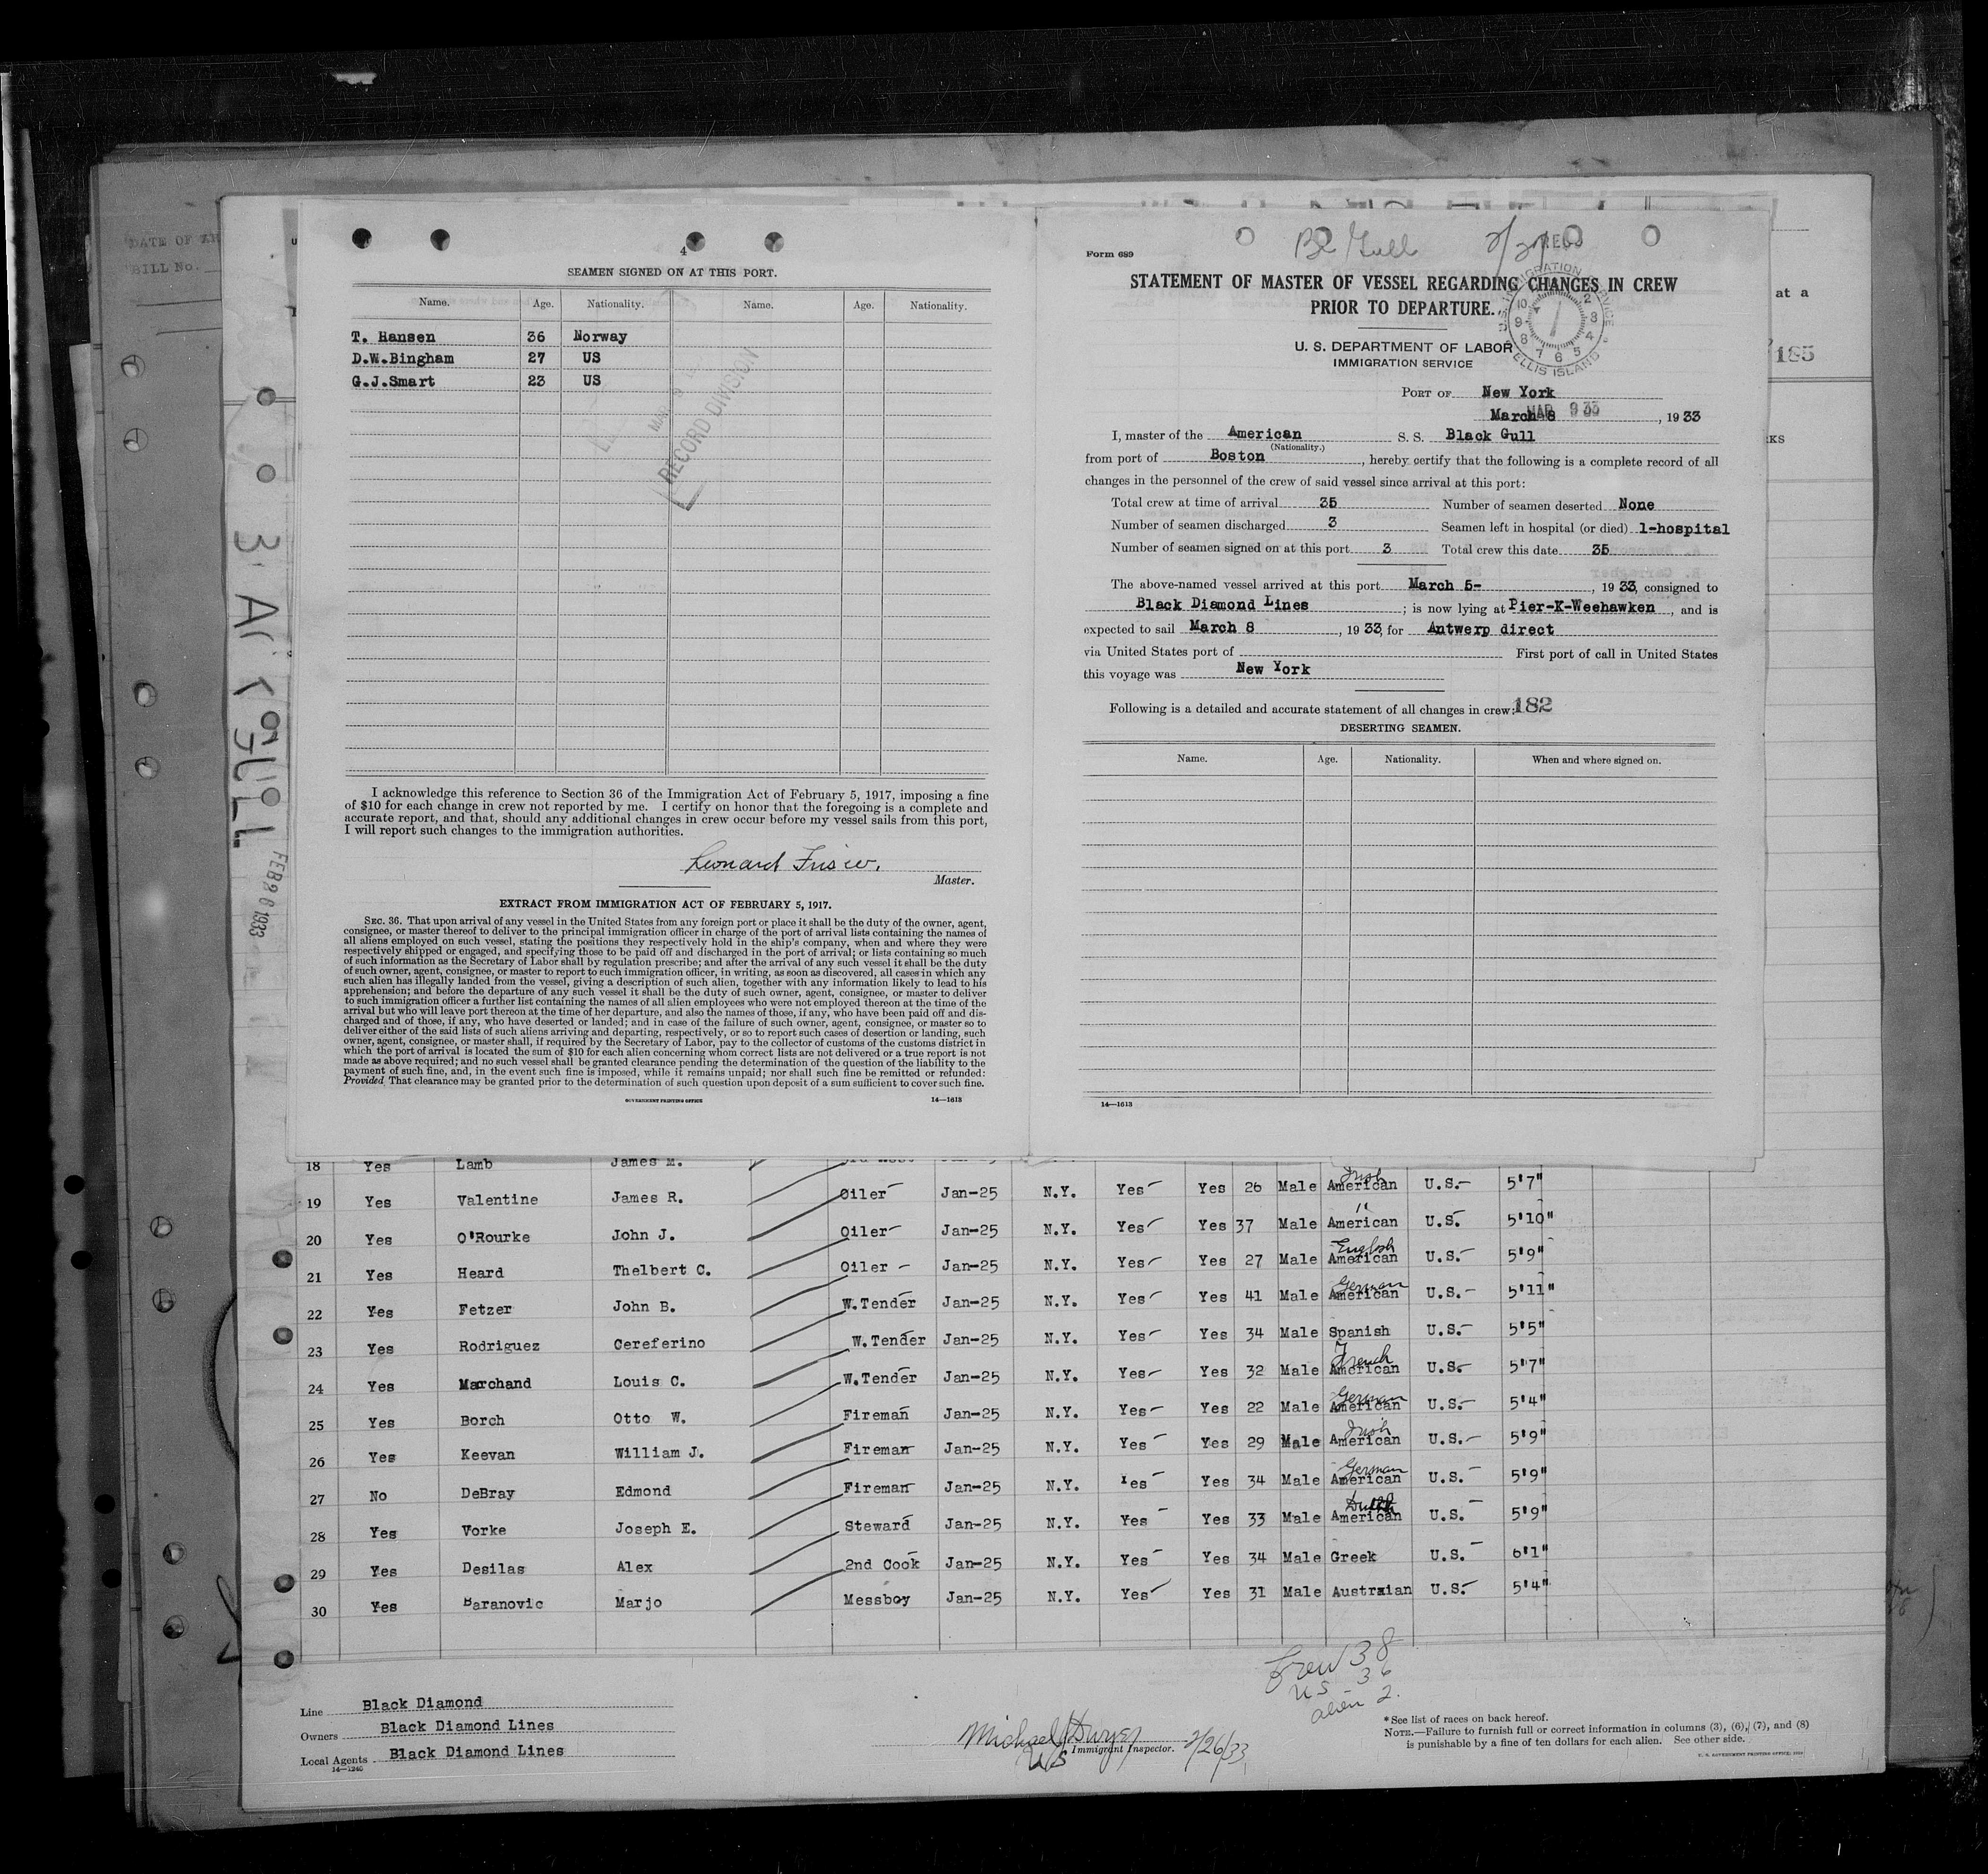 DATE OF
BILL No.
4
SEAMEN SIGNED ON AT THIS PORT.
Name. Age. Nationality. Name. Age. Nationality.
T. Hansen 36 Norway
D.W.Bingham 27 US
G.J.Smart 23 US
RECORD DIVISION
I acknowledge this reference to Section 36 of the Immigration Act of February 5, 1917, imposing a fine
of $10 for each change in crew not reported by me. I certify on honor that the foregoing is a complete and
accurate report, and that, should any additional changes in crew occur before my vessel sails from this port,
I will report such changes to the immigration authorities.
Leonard
Master.
EXTRACT FROM IMMIGRATION ACT OF FEBRUARY 5, 1917.
SEC. 36. That upon arrival of any vessel in the United States from any foreign port or place it shall be the duty of the owner, agent,
consignee, or master thereof to deliver to the principal immigration officer in charge of the port of arrival lists containing the names of
all aliens employed on such vessel, stating the positions they respectively hold in the ship's company, when and where they were
respectively shipped or engaged, and specifying those to be paid off and discharged in the port of arrival; or lists containing so much
of such information as the Secretary of Labor shall by regulation prescribe; and after the arrival of any such vessel it shall be the duty
of such owner, agent, consignee, or master to report to such immigration officer, in writing, as soon as discovered, all cases in which any
such alien has illegally landed from the vessel, giving a description of such alien, together with any information likely to lead to his
apprehension; and before the departure of any such vessel it shall be the duty of such owner, agent, consignee, or master to deliver
to such immigration officer a further list containing the names of all alien employees who were not employed thereon at the time of the
arrival but who will leave port thereon at the time of her departure, and also the names of those, if any, who have been paid off and dis-
charged and of those, if any, who have deserted or landed; and in case of the failure of such owner, agent, consignee, or master so to
deliver either of the said lists of such aliens arriving and departing, respectively, or so to report such cases of desertion or landing, such
owner, agent, consignee, or master shall, if required by the Secretary of Labor, pay to the collector of customs of the customs district in
which the port of arrival is located the sum of $10 for each alien concerning whom correct lists are not delivered or a true report is not
made as above required; and no such vessel shall be granted clearance pending the determination of the question of the liability to the
payment of such fine, and, in the event such fine is imposed, while it remains unpaid; nor shall such fine be remitted or refunded:
Provided That clearance may be granted prior to the determination of such question upon deposit of a sum sufficient to cover such fine.
GOVERNMENT PRINTING OFFICE 14—1613
FEB 26 1933
Form 689
Bl Gull
STATEMENT OF MASTER OF VESSEL REGARDING CHANGES IN CREW
PRIOR TO DEPARTURE.
U. S. DEPARTMENT OF LABOR
IMMIGRATION SERVICE
U.S. IMMIGRATION SERVICE
ELLIS ISLAND
PORT OF New York
March 8, 1933
MAR 9 33
I, master of the American S. S. Black Gull
(Nationality.)
from port of Boston, hereby certify that the following is a complete record of all
changes in the personnel of the crew of said vessel since arrival at this port:
Total crew at time of arrival 35 Number of seamen deserted None
Number of seamen discharged 3 Seamen left in hospital (or died) 1-hospital
Number of seamen signed on at this port 3 Total crew this date 35
The above-named vessel arrived at this port March 5-, 1933, consigned to
Black Diamond Lines; is now lying at Pier-K-Weehawken, and is
expected to sail March 8, 1933, for Antwerp direct
via United States port of First port of call in United States
this voyage was New York
Following is a detailed and accurate statement of all changes in crew: 182
DESERTING SEAMEN.
Name. Age. Nationality. When and where signed on.
14—1613
at a
185
18 Yes Lamb James M.
19 Yes Valentine James R. Oiler Jan-25 N.Y. Yes Yes 26 Male American Irish U.S. 5'7"
20 Yes O'Rourke John J. Oiler Jan-25 N.Y. Yes Yes 37 Male American " U.S. 5'10"
21 Yes Heard Thelbert C. Oiler Jan-25 N.Y. Yes Yes 27 Male American English U.S. 5'9"
22 Yes Fetzer John B. W.Tender Jan-25 N.Y. Yes Yes 41 Male American German U.S. 5'11"
23 Yes Rodriguez Cereferino W.Tender Jan-25 N.Y. Yes Yes 34 Male Spanish U.S. 5'5"
24 Yes Marchand Louis C. W.Tender Jan-25 N.Y. Yes Yes 32 Male American French U.S. 5'7"
25 Yes Borch Otto W. Fireman Jan-25 N.Y. Yes Yes 22 Male American German U.S. 5'4"
26 Yes Keevan William J. Fireman Jan-25 N.Y. Yes Yes 29 Male American Irish U.S. 5'9"
27 No DeBray Edmond Fireman Jan-25 N.Y. Yes Yes 34 Male American German U.S. 5'9"
28 Yes Vorke Joseph E. Steward Jan-25 N.Y. Yes Yes 33 Male American Dutch U.S. 5'9"
29 Yes Desilas Alex 2nd Cook Jan-25 N.Y. Yes Yes 34 Male Greek U.S. 6'1"
30 Yes Baranovic Marjo Messboy Jan-25 N.Y. Yes Yes 31 Male Austraian U.S. 5'4"
Crew 38
US 36
alien 2.
Line Black Diamond
Owners Black Diamond Lines
Local Agents Black Diamond Lines
14—1240
Michael Dwyer
US Immigrant Inspector. 2/26/33
*See list of races on back hereof.
NOTE.—Failure to furnish full or correct information in columns (3), (6), (7), and (8)
is punishable by a fine of ten dollars for each alien. See other side.